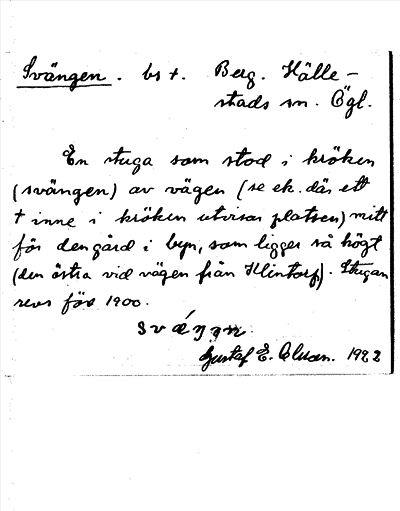 Svängen. bs †. Berg. Hälle-
stads sn. Ögl.
En stuga som stod i kröken
(svängen) av vägen (se ek. där ett
† inne i kröken utvisar platsen) mitt
för den gård i byn, som ligger så högt
(den östra vid vägen från Klintorp). Stugan
revs före 1900.
Gustaf E. Olsson. 1922